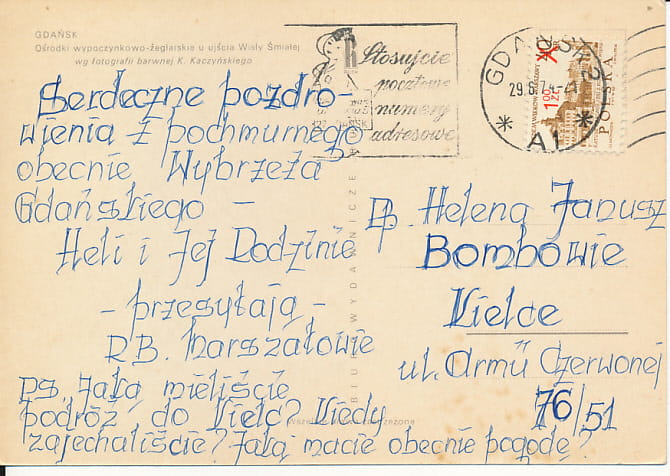 GDAŃSK
Ośrodki wypoczynkowo-żeglarskie u ujścia Wisły Śmiałej
wg fotografii barwnej K. Kaczyńskiego
Stosujcie
pocztowe
numery
adresowe
GDAŃSK 2
29.6.74
* A1 *
1,00 ZŁ
POLSKA
Serdeczne pozdro-
wienia z pochmurnego
obecnie Wybrzeża
Gdańskiego –
Heli i Jej Rodzinie
– przesyłają –
R.B. Marszałowie
PS. Jaką mieliście
podróż do Kielc? Kiedy
zajechaliście? Jaką macie obecnie pogodę?
Helena Janusz
Bombowie
Kielce
ul. Armii Czerwonej
76/51